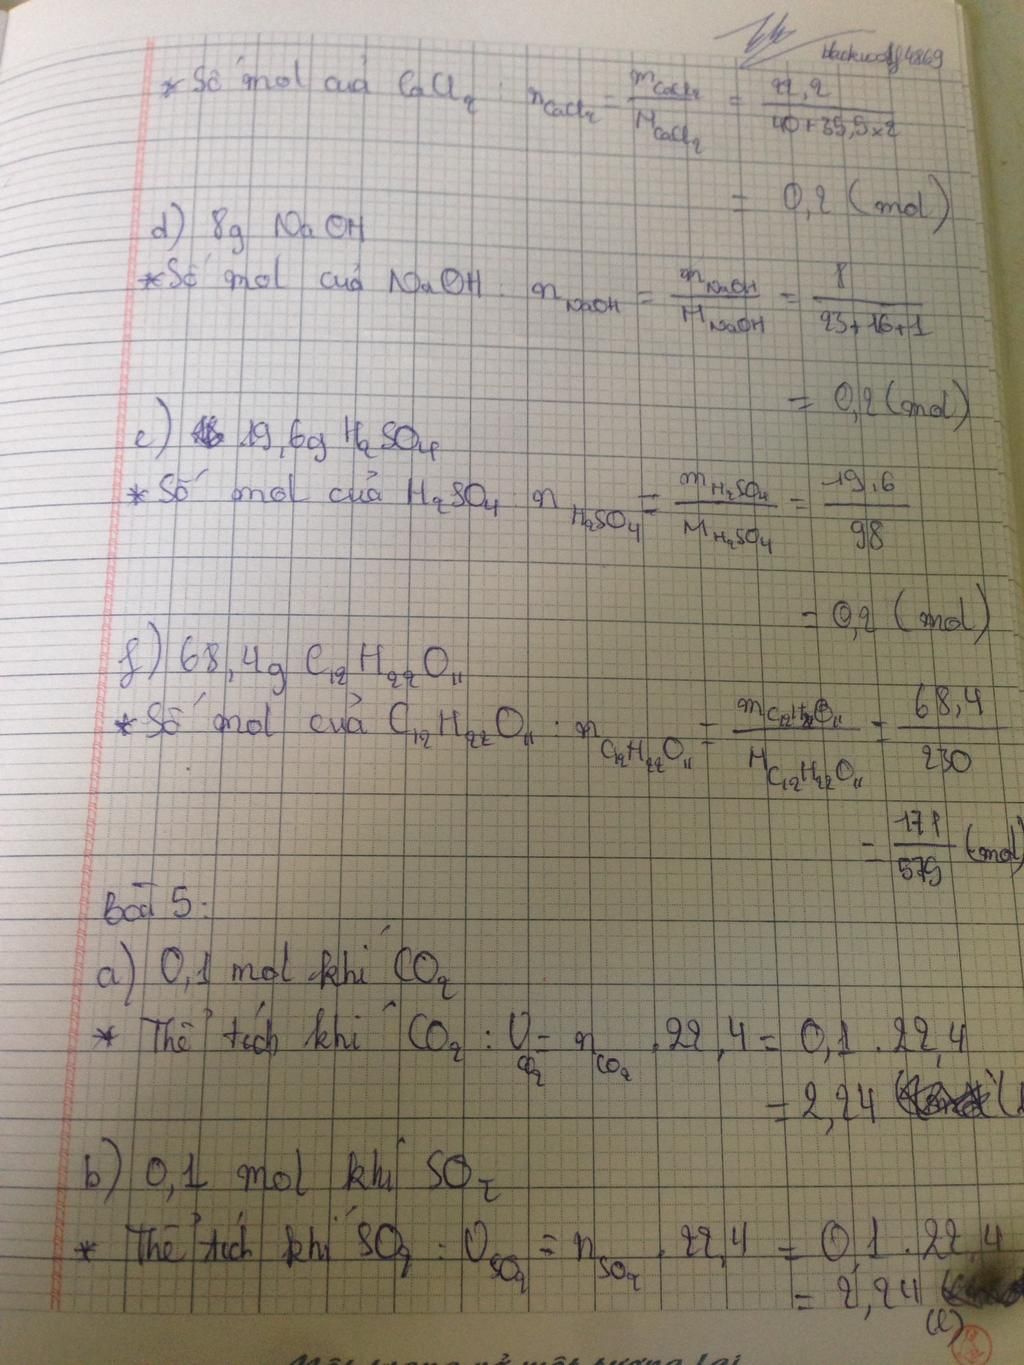 blackwolf4869
* Số mol của CaCl₂ : n_CaCl₂ = m_CaCl₂ / M_CaCl₂ = 22,2 / 40+35,5x2
= 0,2 (mol)
d) 8g NaOH
* Số mol của NaOH : n_NaOH = m_NaOH / M_NaOH = 8 / 23+16+1
= 0,2 (mol)
e) 19,6g H₂SO₄
* Số mol của H₂SO₄ : n_H₂SO₄ = m_H₂SO₄ / M_H₂SO₄ = 19,6 / 98
= 0,2 (mol)
f) 68,4g C₁₂H₂₂O₁₁
* Số mol của C₁₂H₂₂O₁₁ : n_C₁₂H₂₂O₁₁ = m_C₁₂H₂₂O₁₁ / M_C₁₂H₂₂O₁₁ = 68,4 / 230
= 171 / 579 (mol)
Bài 5:
a) 0,1 mol khí CO₂
* Thể tích khí CO₂ : V_CO₂ = n_CO₂ . 22,4 = 0,1 . 22,4
= 2,24 (l
b) 0,1 mol khí SO₂
* Thể tích khí SO₂ : V_SO₂ = n_SO₂ . 22,4 = 0,1 . 22,4
= 2,24
(l)